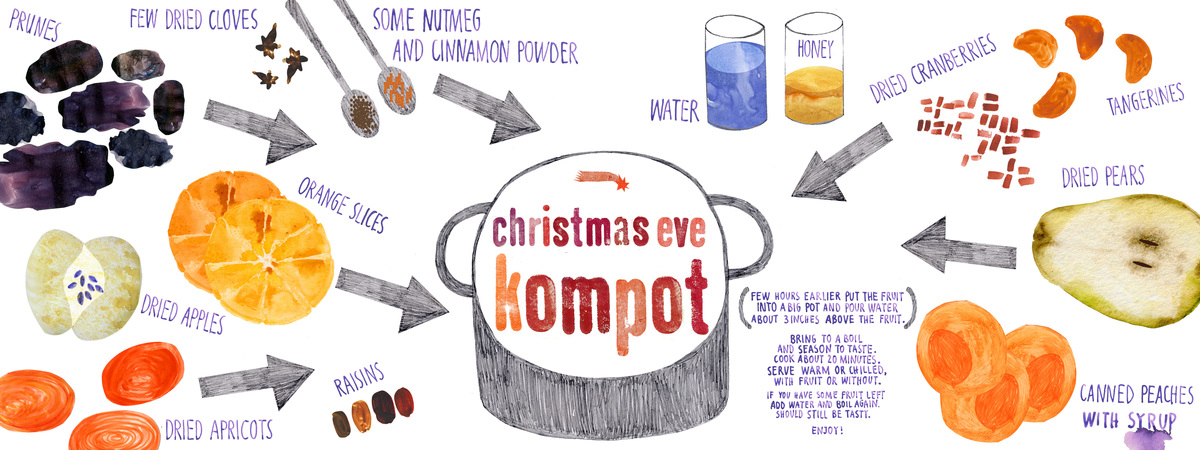 PRUNES
FEW DRIED CLOVES
SOME NUTMEG
AND CINNAMON POWDER
WATER
HONEY
DRIED CRANBERRIES
TANGERINES
ORANGE SLICES
DRIED PEARS
DRIED APPLES
christmas eve
kompot
(FEW HOURS EARLIER PUT THE FRUIT
INTO A BIG POT AND POUR WATER
ABOUT 3 INCHES ABOVE THE FRUIT.)
BRING TO A BOIL
AND SEASON TO TASTE.
COOK ABOUT 20 MINUTES.
SERVE WARM OR CHILLED,
WITH FRUIT OR WITHOUT.
IF YOU HAVE SOME FRUIT LEFT
ADD WATER AND BOIL AGAIN.
SHOULD STILL BE TASTY.
ENJOY!
RAISINS
DRIED APRICOTS
CANNED PEACHES
WITH SYRUP